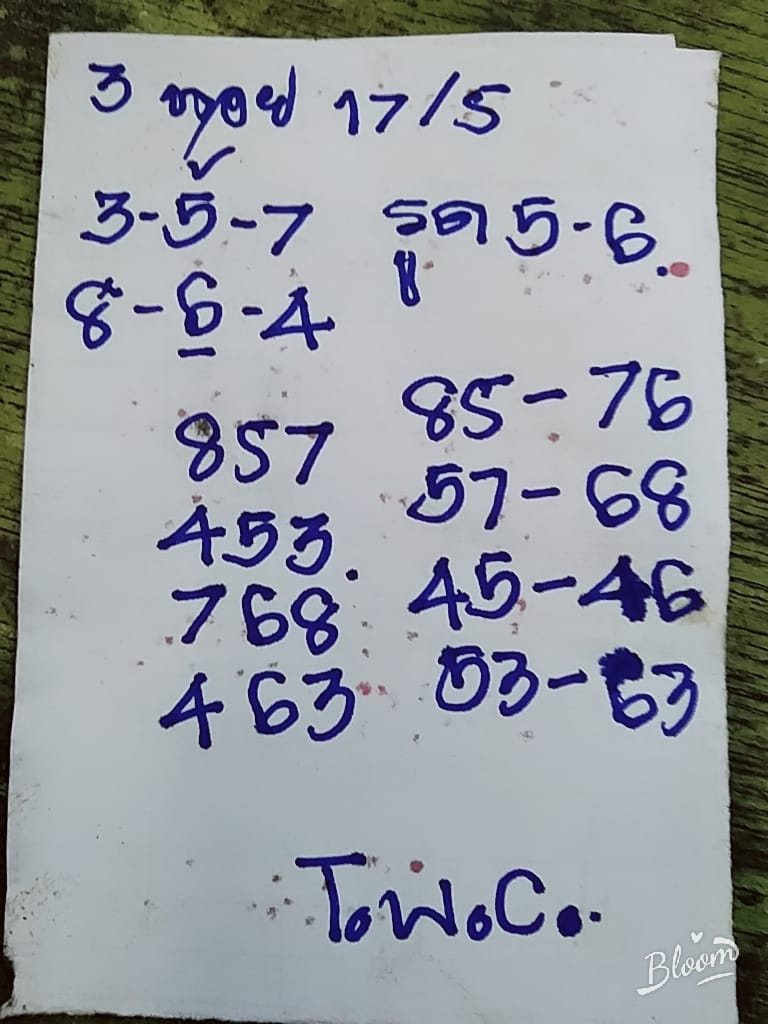 3 หุ้อย 17/5
3-5-7 รูด 5-6.
8-6-4
857 85-76
453. 57-68
768 45-46
463 53-63
T.W.C..
Bloom